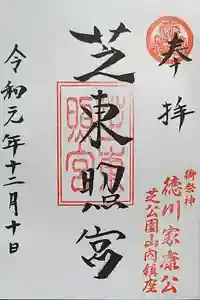 奉拝
御祭神
徳川家康公
芝公園山内鎮座
芝東照宮
令和元年十二月十日